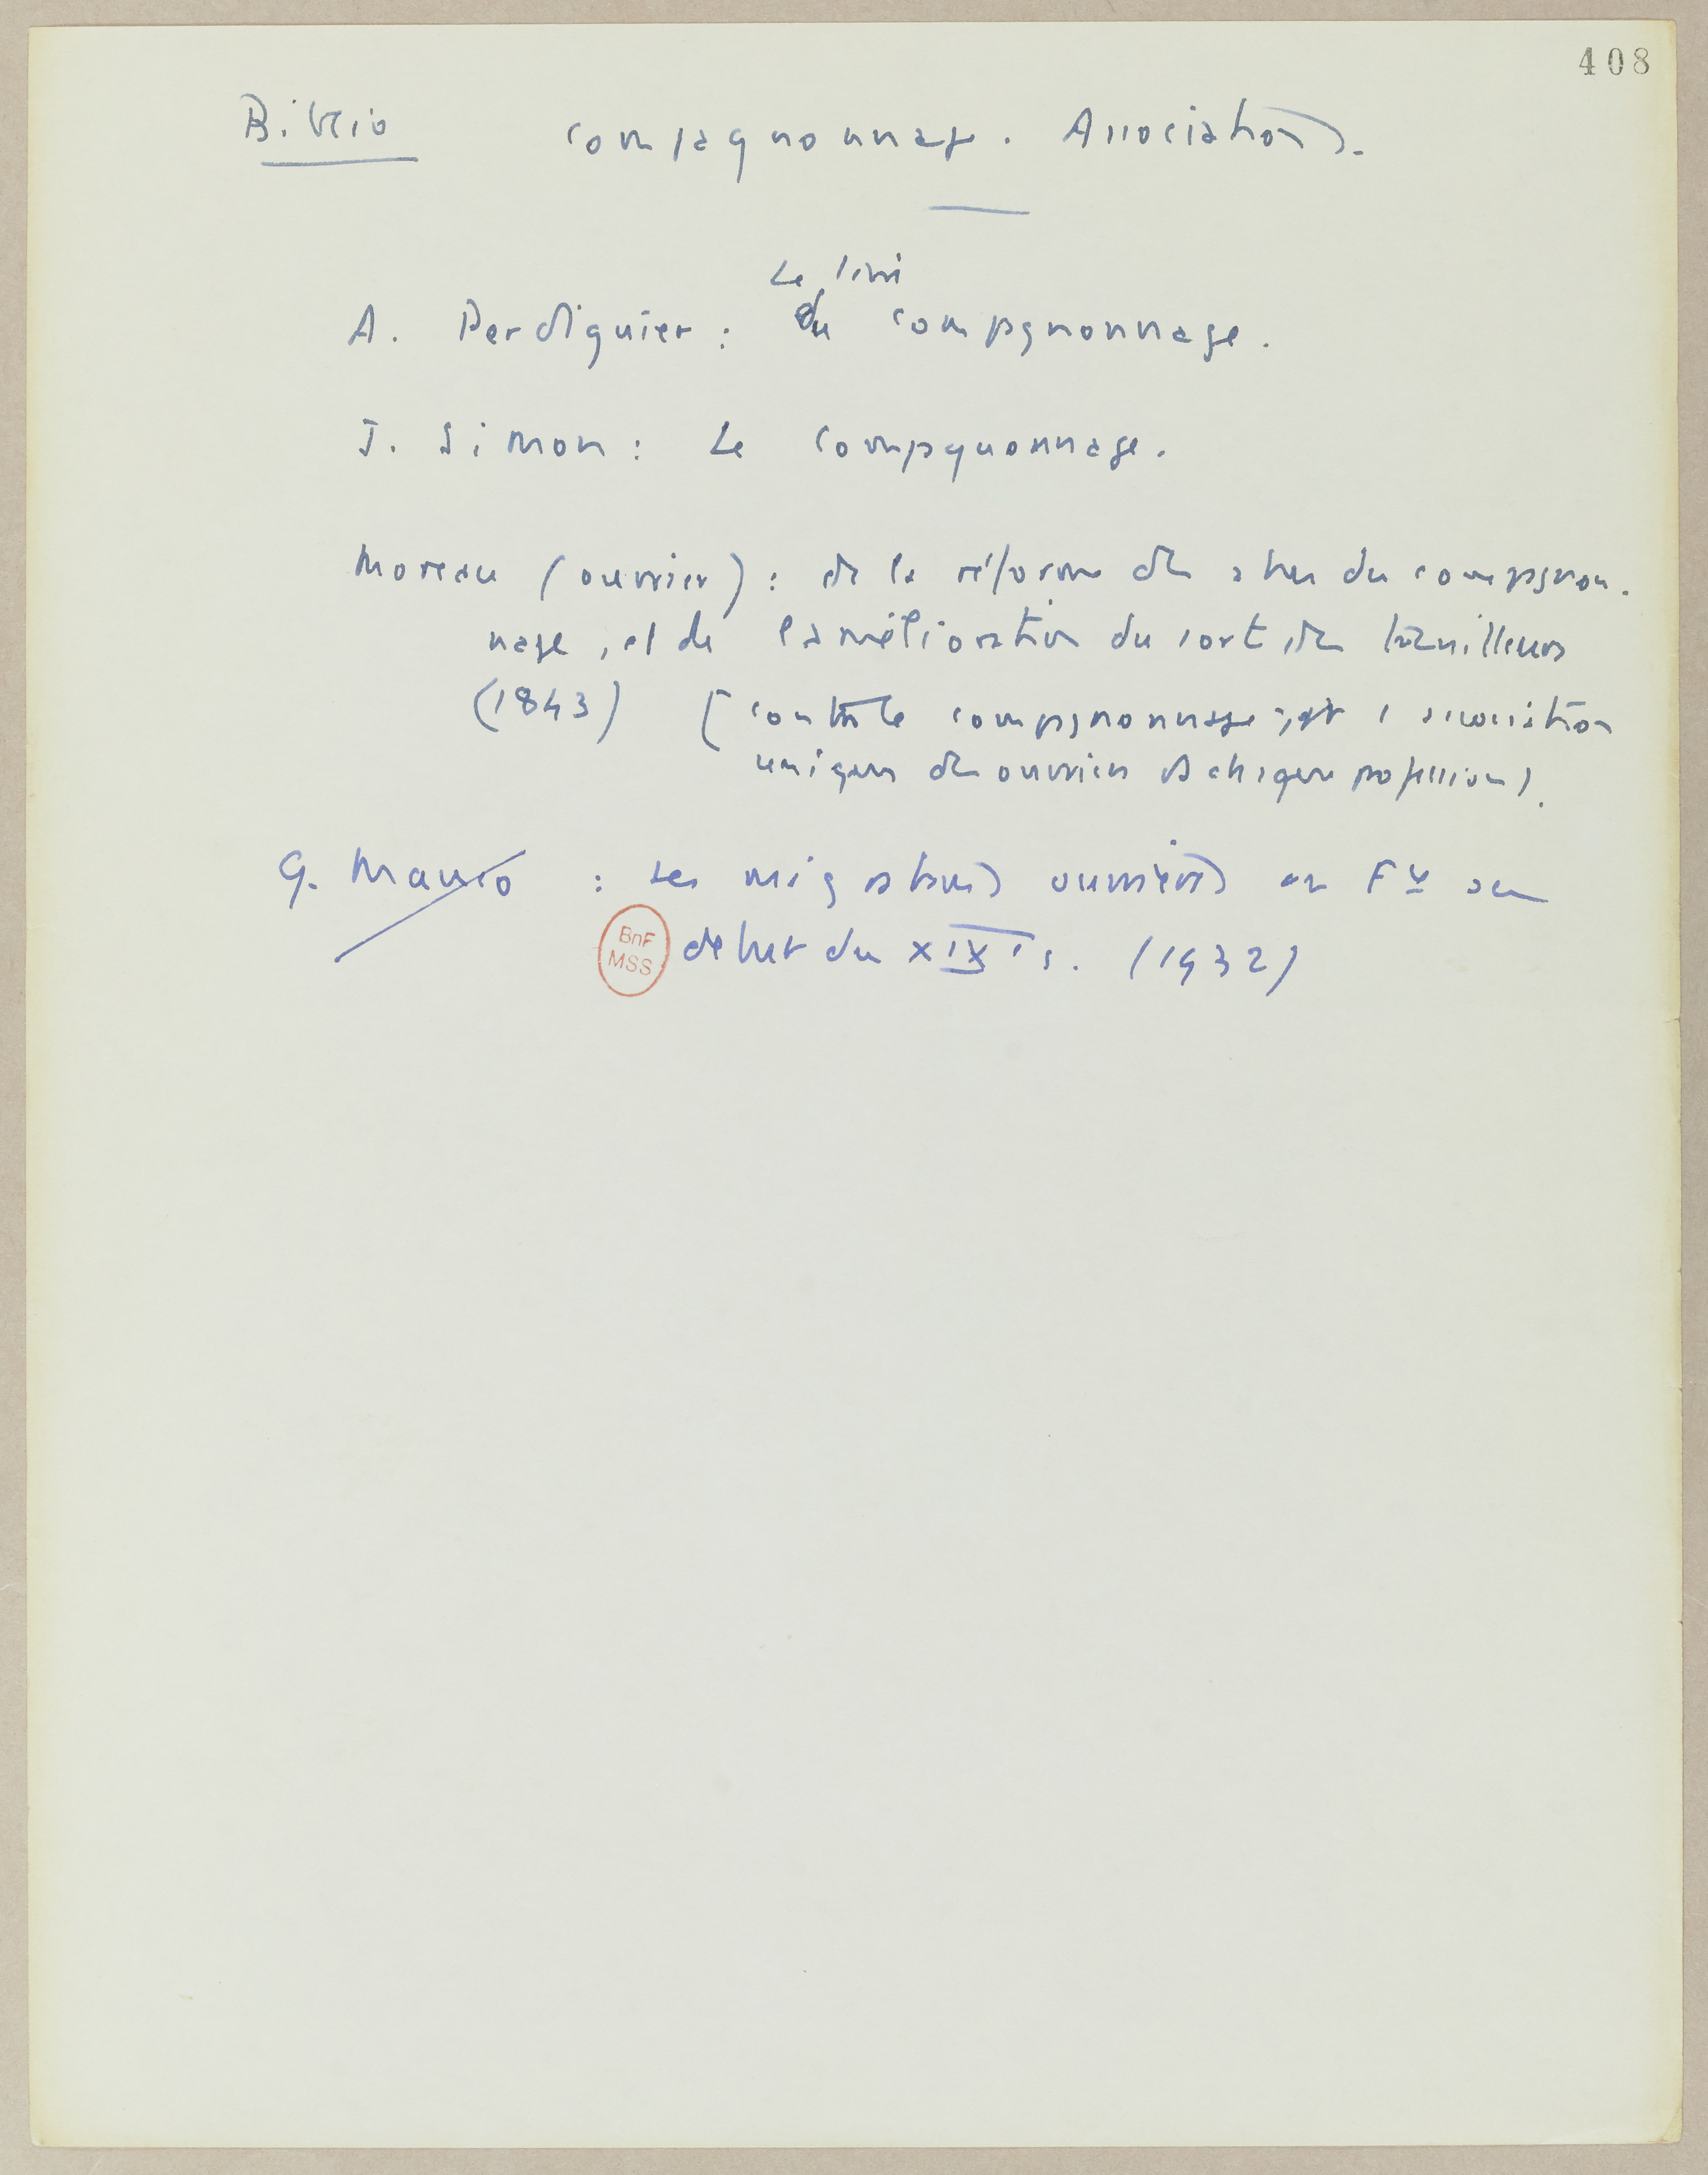 408
Biblio compagnonnage. Associations.
Le livre
A. Perdiguier : du compagnonnage.
J. Simon : Le compagnonnage.
Moreau (ouvrier) : de la réforme des abus du compagnon.
nage, et de l'amélioration du sort des travailleurs
(1843) (contre le compagnonnage, et l'association
unique des ouvriers de chaque profession).
G. Mauco : Les migrations ouvrières en Fce au
BnF
MSS
début du XIXe s. (1932)